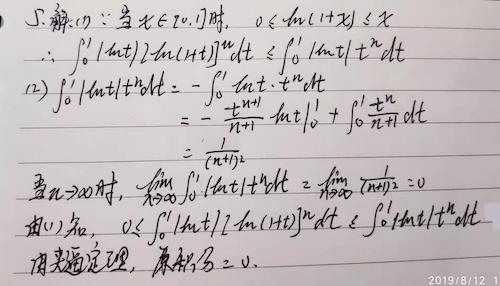 5.解:(1) ∵当x∈[0,1]时, 0≤ln(1+x)≤x
∴ ∫₀¹|lnt|[ln(1+t)]ⁿdt ≤ ∫₀¹|lnt|tⁿdt
(2) ∫₀¹|lnt|tⁿdt = -∫₀¹lnt·tⁿdt
= - tⁿ⁺¹/(n+1) lnt|₀¹ + ∫₀¹ tⁿ/(n+1) dt
= 1/(n+1)²
当n→∞时, lim n→∞ ∫₀¹|lnt|tⁿdt = lim n→∞ 1/(n+1)² = 0
由(1)知, 0≤∫₀¹|lnt|[ln(1+t)]ⁿdt ≤ ∫₀¹|lnt|tⁿdt
由夹逼定理, 原积分=0.
2019/8/12 1